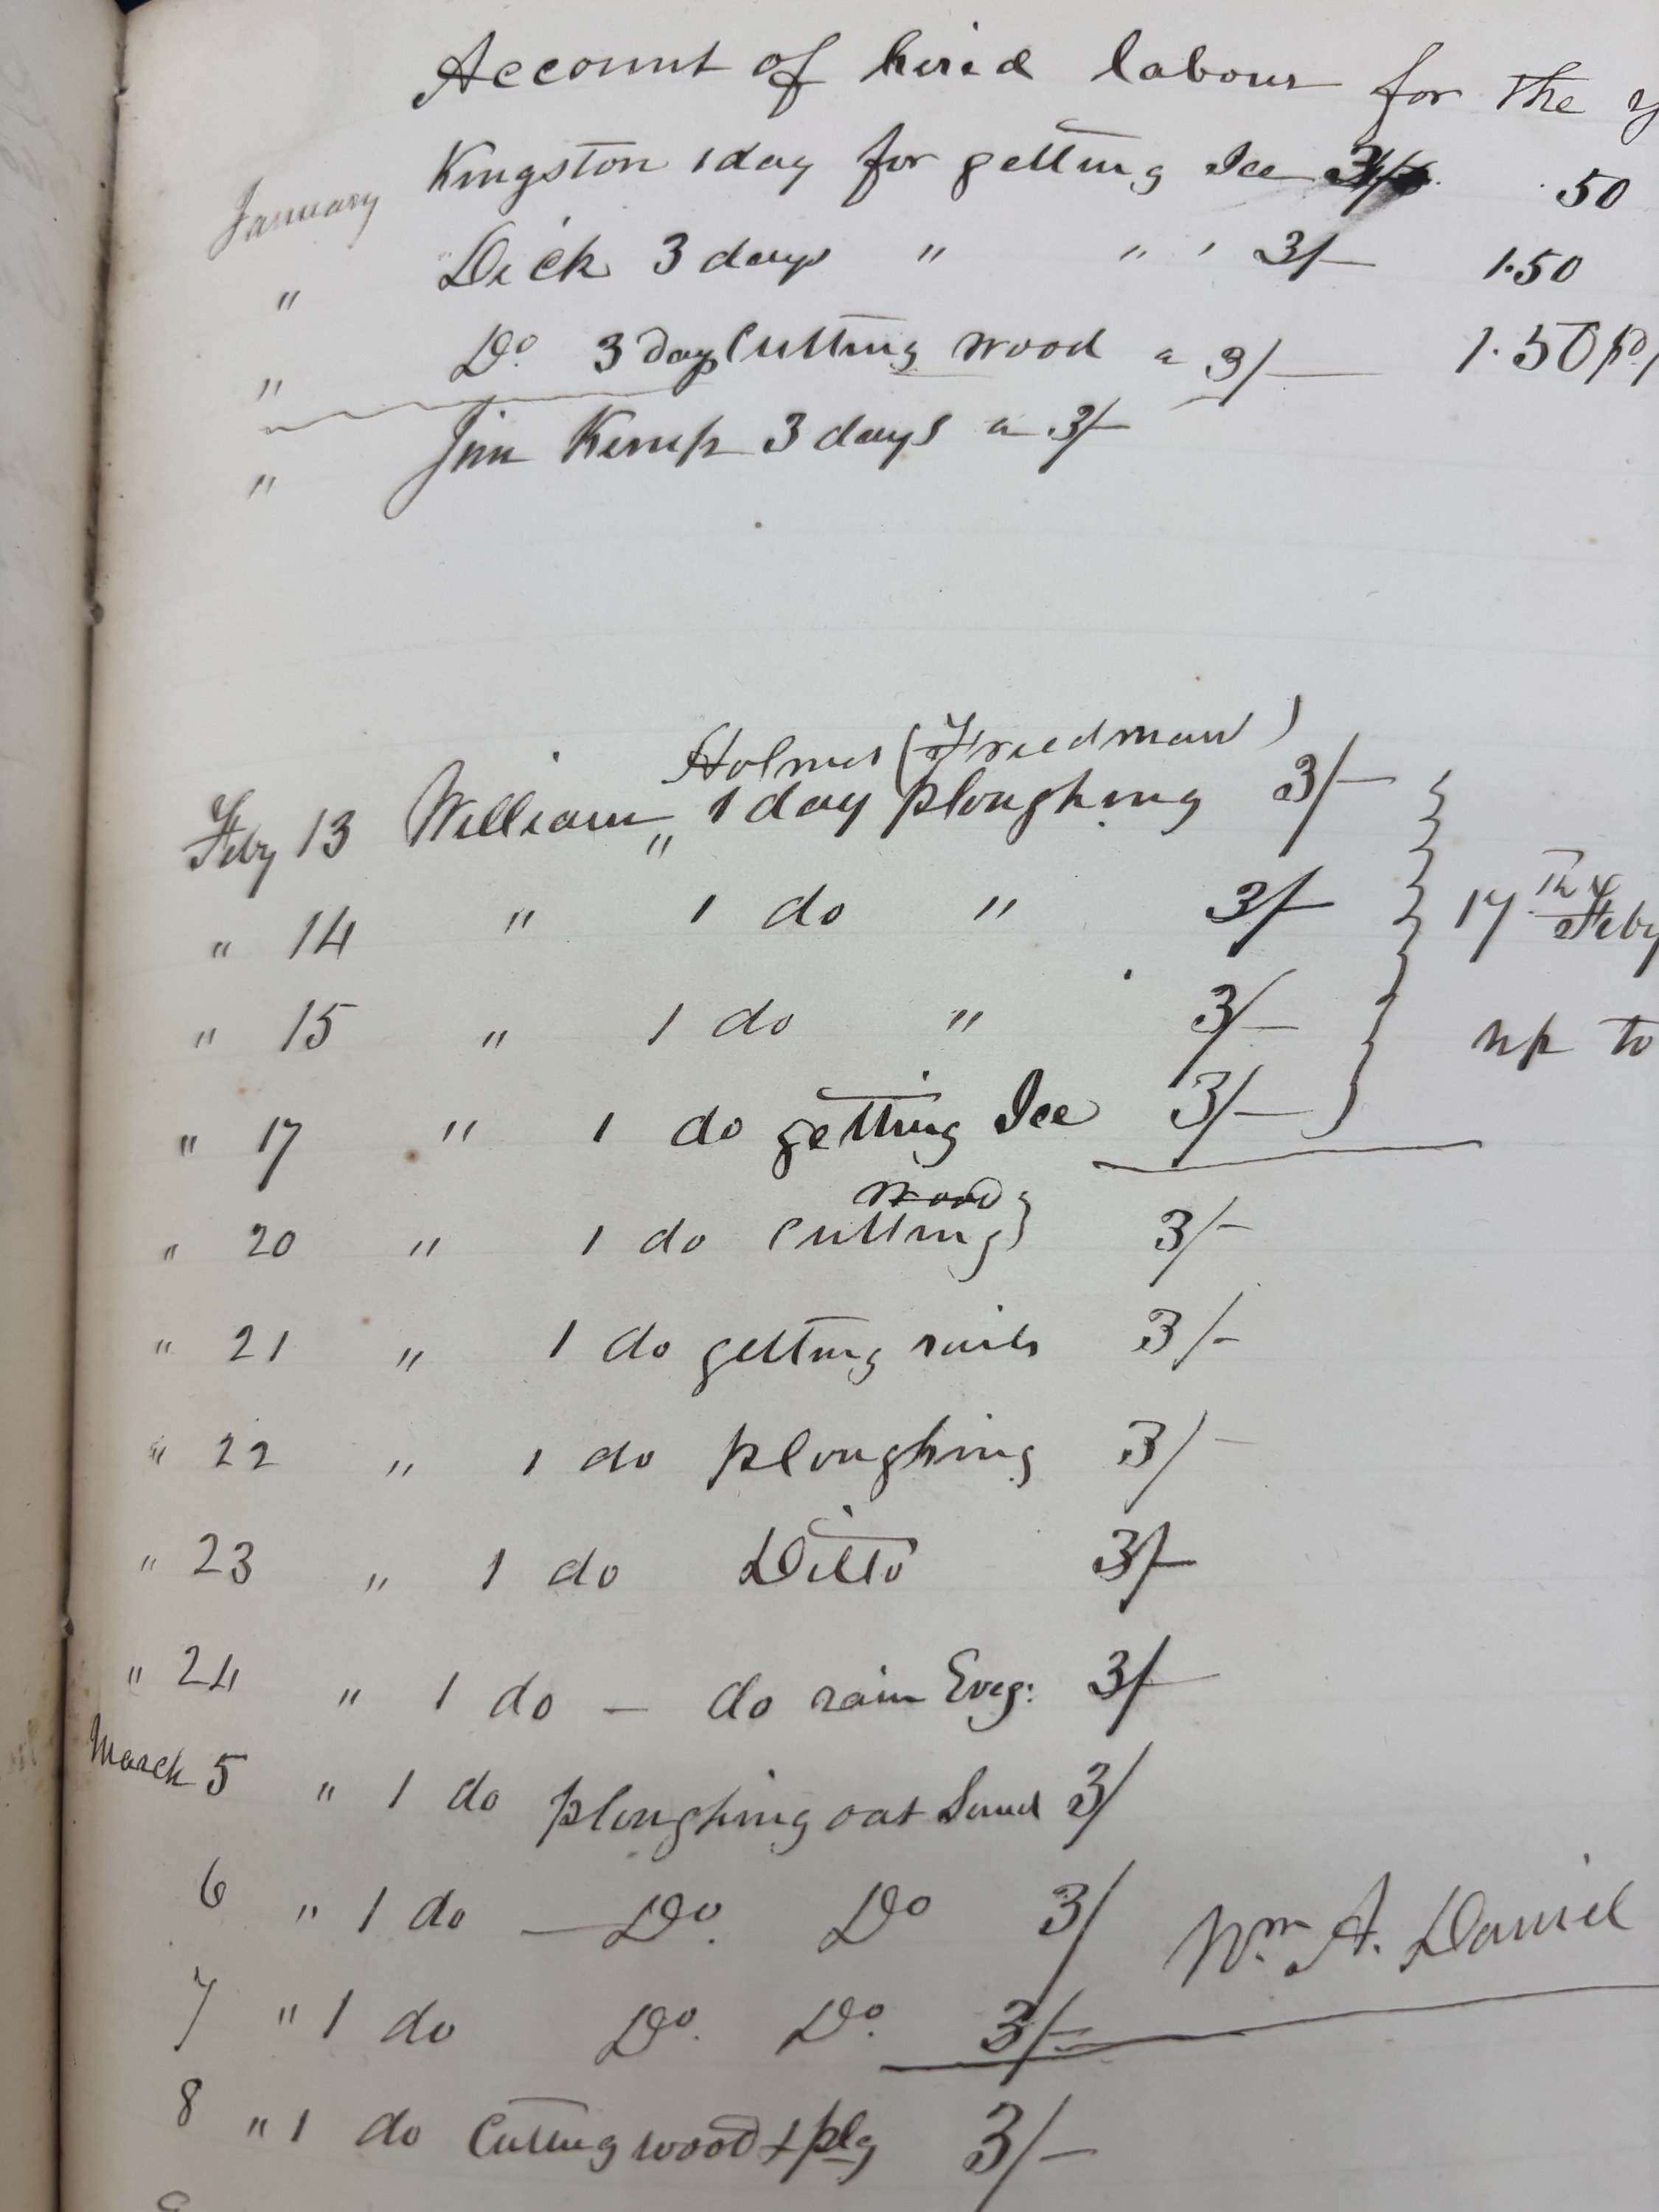 Account of hired labour for the y
January Kingston 1 day for getting Ice 3/ .50
" Dick 3 days " " ' 3/- 1.50
" Do. 3 days Cutting wood a 3/- 1.50 pd
" Jim Kemp 3 days a 3/-
Holmes (Freedman)
Feby 13 William " 1 day ploughing 3/-
" 14 " 1 do " 3/- 17th Feby
" 15 " 1 do " 3/- up to
" 17 " 1 do getting Ice 3/-
wood
" 20 " 1 do Cutting 3/-
" 21 " 1 do getting rails 3/-
" 22 " 1 do ploughing 3/-
" 23 " 1 do Ditto 3/-
" 24 " 1 do — do rain Eveg: 3/-
March 5 " 1 do ploughing oat Land 3/
6 " 1 do — Do. Do 3/ Wm A. Daniel
7 " 1 do Do. Do. 3/-
8 " 1 do Cutting wood & plg 3/-